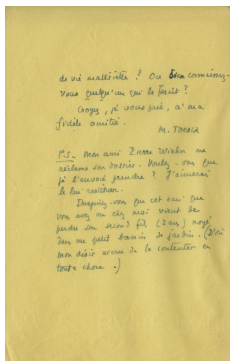 de vie matérielle ? Ou bien connaissez-
vous quelqu'un qui le ferait ?
Croyez, je vous prie, à ma
fidèle amitié.
M.
P.S. Mon ami me
réclame son dossier. Voulez-vous que
je l'envoie prendre ? J'aimerais
le lui restituer.
Imaginez-vous que cet ami que
vous avez vu chez moi vient de
perdre son second fils (2 ans) noyé
dans un petit bassin de jardin. (D'où
mon désir accru de le contenter en
toute chose.)